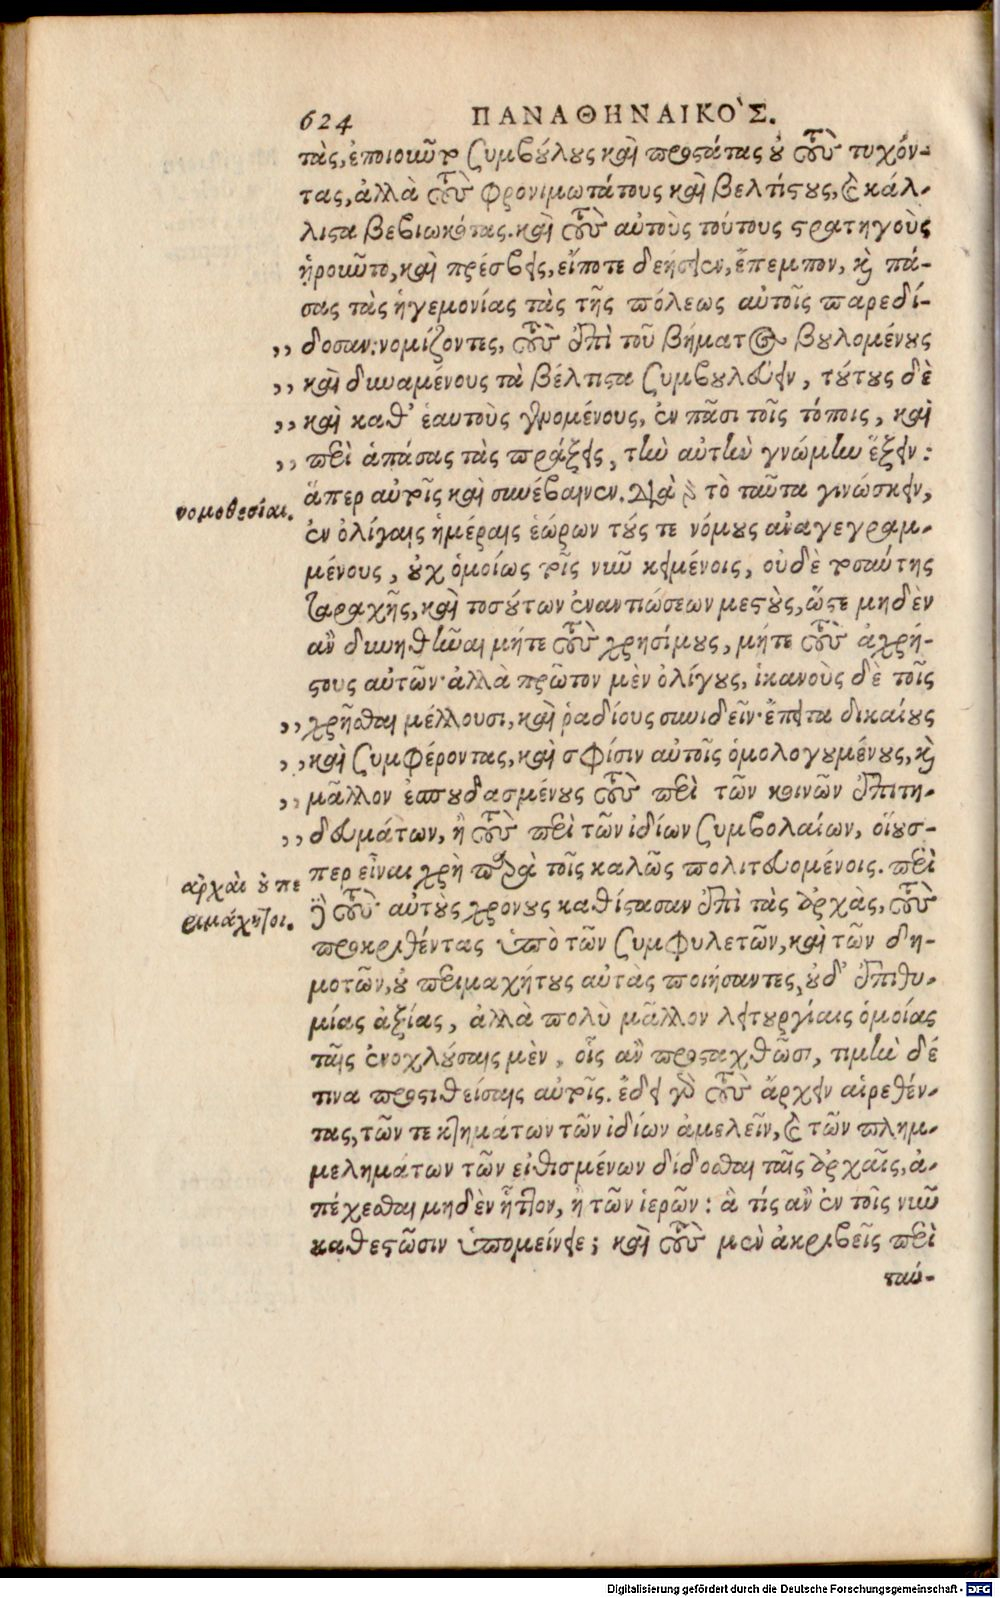 624 ΠΑΝΑΘΗΝΑΙΚΟ'Σ.
τὰς, ἐποιοῦντο συμβούλους καὶ προστάτας οὐ τοὺς τυχόν-
τας, ἀλλὰ τοὺς φρονιμωτάτους καὶ βελτίστους, καὶ κάλ-
λιστα βεβιωκότας. καὶ τοὺς αὐτοὺς τούτους στρατηγοὺς
ᾑροῦντο, καὶ πρέσβεις, εἴποτε δεήσειεν, ἔπεμπον, καὶ πά-
σας τὰς ἡγεμονίας τὰς τῆς πόλεως αὐτοῖς παρεδί-
,, δοσαν: νομίζοντες, τοὺς ἐπὶ τοῦ βήματος βουλομένους
,, καὶ δυναμένους τὰ βέλτιστα συμβουλεύειν, τούτους δὲ
,, καὶ καθ' ἑαυτοὺς γενομένους, ἐν πᾶσι τοῖς τόποις, καὶ
,, περὶ ἁπάσας τὰς πράξεις, τὴν αὐτὴν γνώμην ἕξειν:
νομοθεσίαι. ἅπερ αὐτοῖς καὶ συνέβαινεν. διὰ γὰρ τὸ ταῦτα γινώσκειν,
ἐν ὀλίγαις ἡμέραις ἑώρων τούς τε νόμους ἀναγεγραμ-
μένους, οὐχ ὁμοίως τοῖς νῦν κειμένοις, οὐδὲ τοσαύτης
ταραχῆς, καὶ τοσούτων ἐναντιώσεων μεστοὺς, ὥστε μηδὲν
ἂν δυνηθῆναι μήτε τοὺς χρησίμους, μήτε τοὺς ἀχρή-
στους αὐτῶν· ἀλλὰ πρῶτον μὲν ὀλίγους, ἱκανοὺς δὲ τοῖς
,, χρῆσθαι μέλλουσι, καὶ ῥαδίους συνιδεῖν· ἔπειτα δικαίους
,, καὶ συμφέροντας, καὶ σφίσιν αὐτοῖς ὁμολογουμένους, καὶ
,, μᾶλλον ἐσπουδασμένους τοὺς περὶ τῶν κοινῶν ἐπιτη-
,, δευμάτων, ἢ τοὺς περὶ τῶν ἰδίων συμβολαίων, οἵουσ-
περ εἶναι χρὴ παρὰ τοῖς καλῶς πολιτευομένοις. περὶ
ἀρχαὶ οὐ πε
ριμάχητοι. δὲ τοὺς αὐτοὺς χρόνους καθίστασαν ἐπὶ τὰς ἀρχὰς, τοὺς
προκριθέντας ὑπὸ τῶν συμφυλετῶν, καὶ τῶν δη-
μοτῶν, οὐ περιμαχήτους αὐτὰς ποιήσαντες, οὐδ' ἐπιθυ-
μίας ἀξίας, ἀλλὰ πολὺ μᾶλλον λειτουργίαις ὁμοίας
ταῖς ἐνοχλούσαις μὲν, οἷς ἂν προσταχθῶσι, τιμὴν δέ
τινα προστιθείσαις αὐτοῖς. ἔδει γὰρ τοὺς ἄρχειν αἱρεθέν-
τας, τῶν τε κτημάτων τῶν ἰδίων ἀμελεῖν, καὶ τῶν πλημ-
μελημάτων τῶν εἰθισμένων δίδοσθαι ταῖς ἀρχαῖς, ἀ-
πέχεσθαι μηδὲν ἧττον, ἢ τῶν ἱερῶν: ἃ τίς ἂν ἐν τοῖς νῦν
καθεστῶσιν ὑπομείνειε; καὶ τοὺς μὲν ἀκριβεῖς περὶ
ταύ-
Digitalisierung gefördert durch die Deutsche Forschungsgemeinschaft - DFG